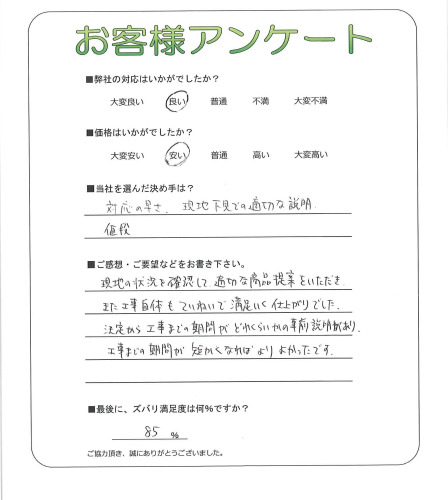 お客様アンケート
■弊社の対応はいかがでしたか？
大変良い 良い 普通 不満 大変不満
■価格はいかがでしたか？
大変安い 安い 普通 高い 大変高い
■当社を選んだ決め手は？
対応の早さ、現地下見での適切な説明
値段
■ご感想・ご要望などをお書き下さい。
現地の状況を確認して適切な商品提案をいただき、
また工事自体もていねいで満足いく仕上がりでした。
決定から工事までの期間がどれくらいかの事前説明があり、
工事までの期間が短かくなればよりよかったです。
■最後に、ズバリ満足度は何％ですか？
85 ％
ご協力頂き、誠にありがとうございました。